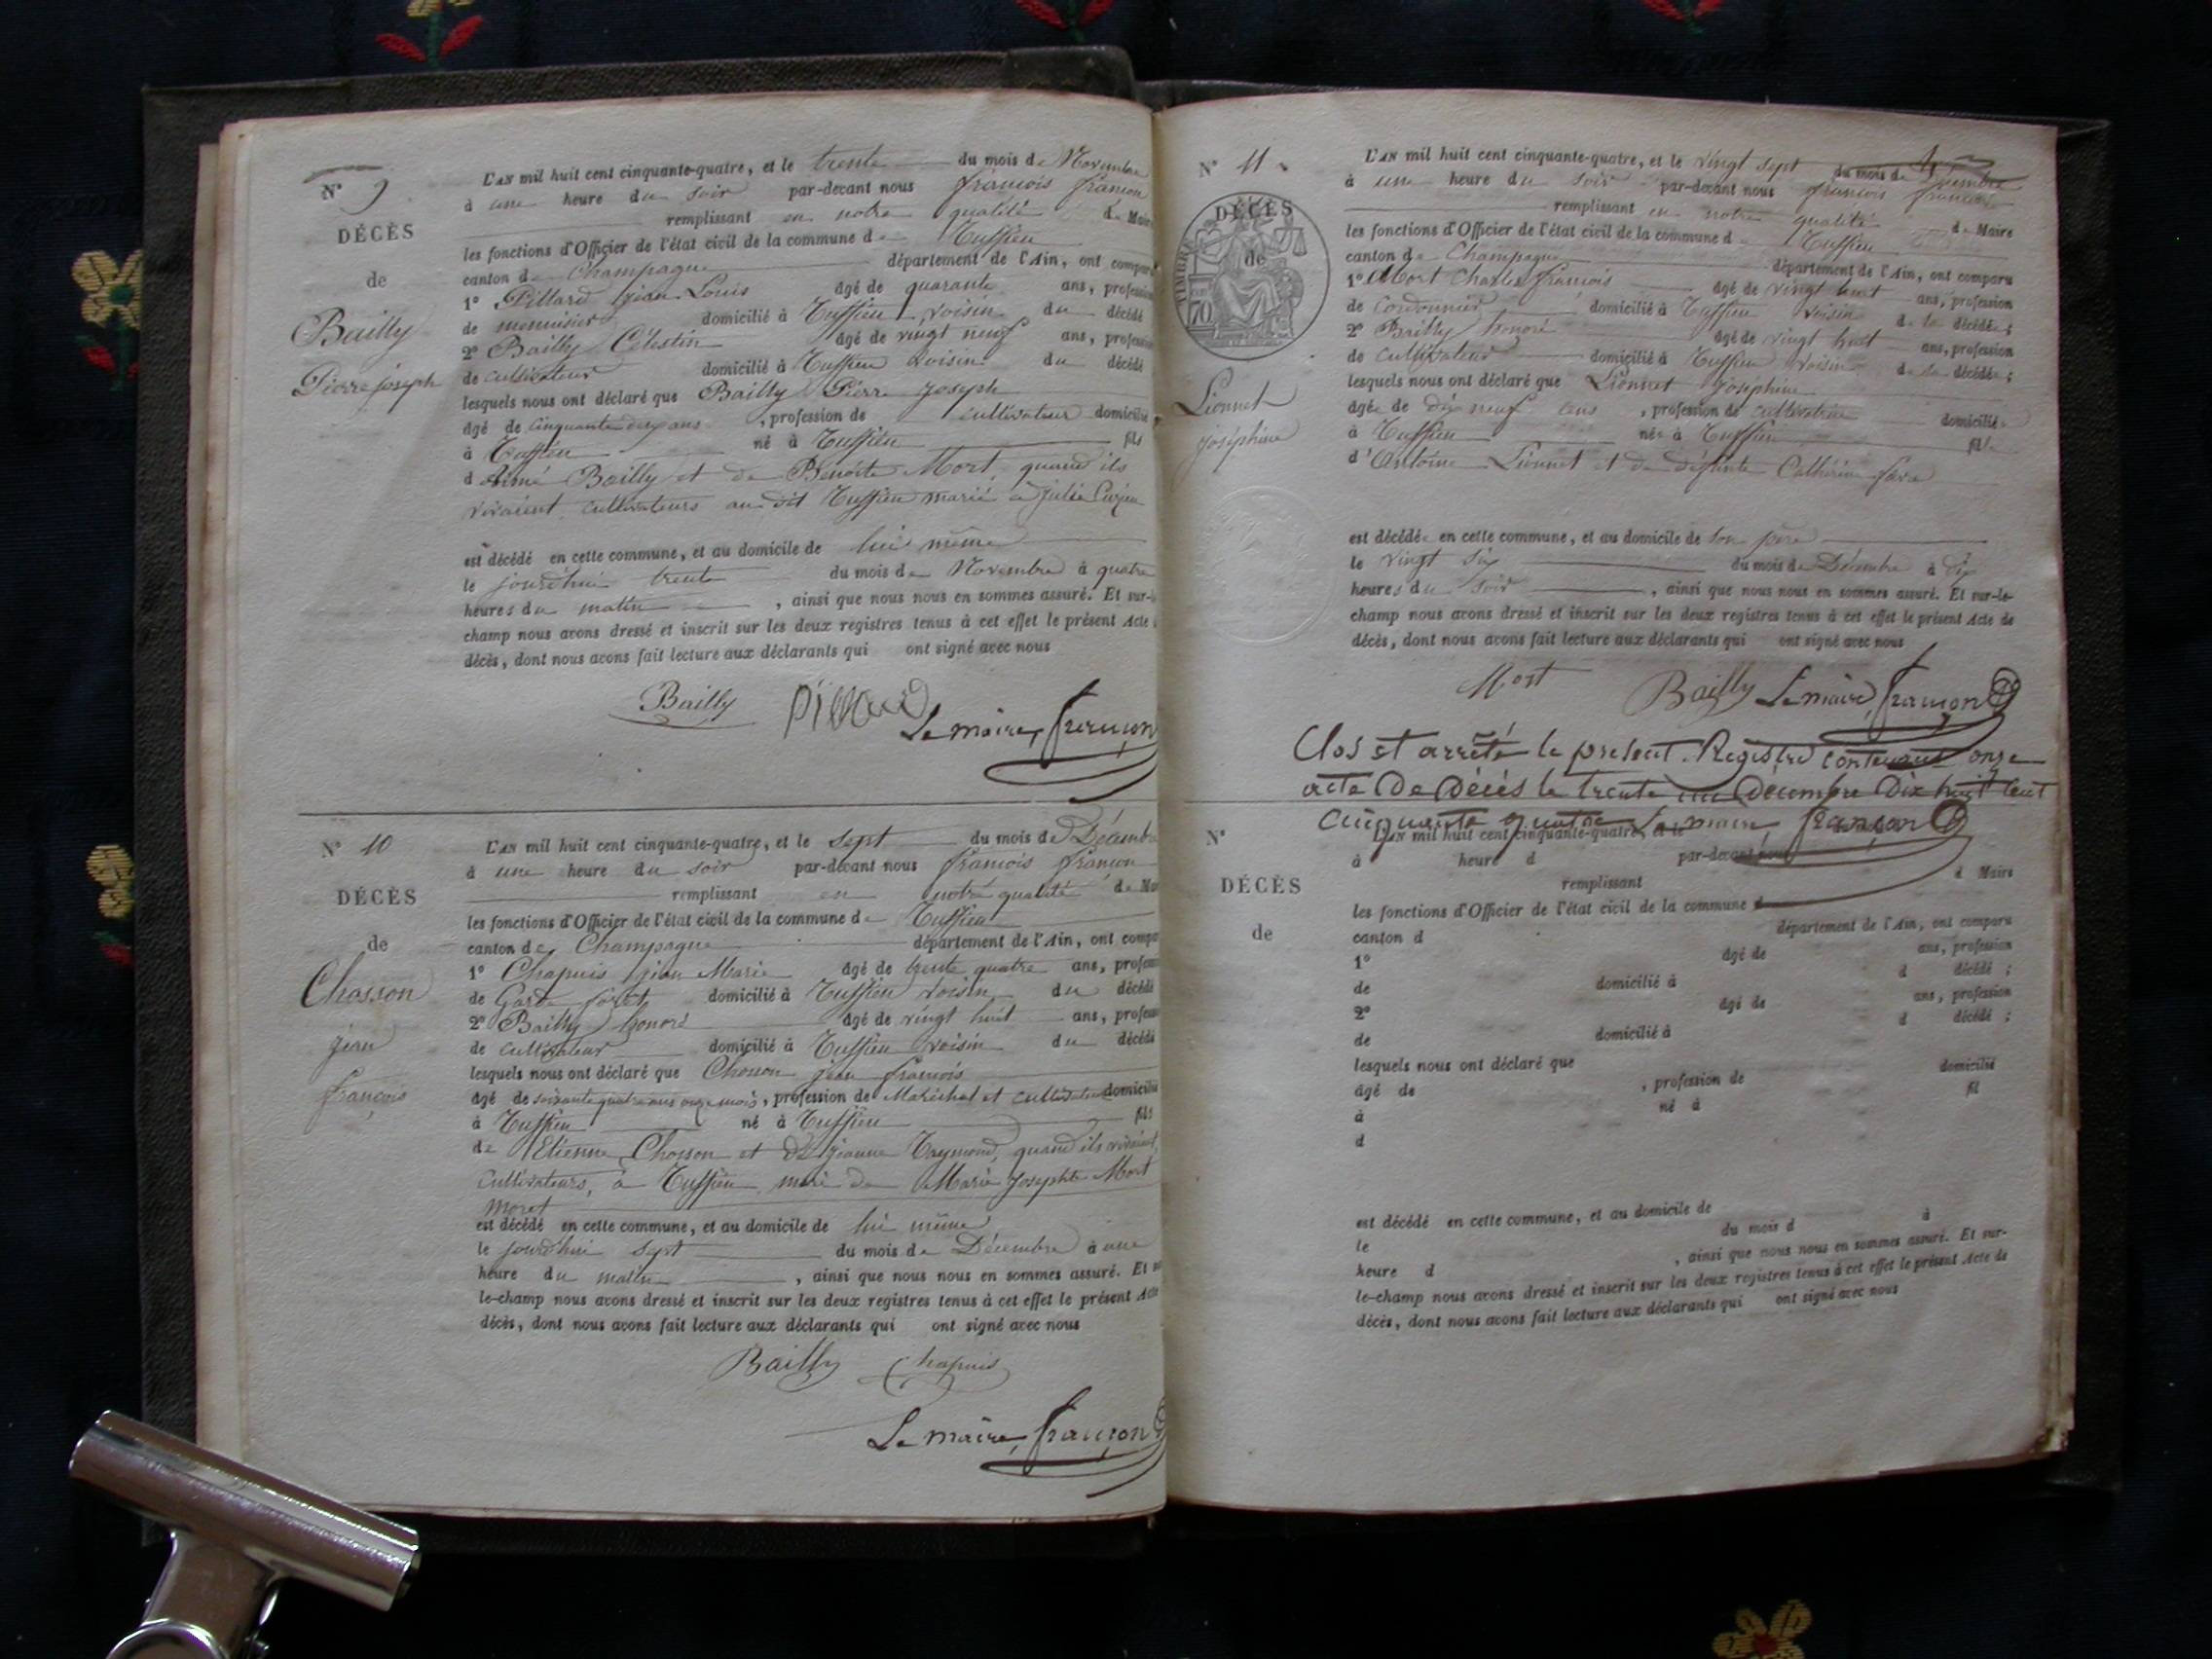 N° 9
DÉCÈS
de
Bailly
Pierre joseph
L'AN mil huit cent cinquante-quatre, et le trente du mois de Novembre
à une heure du soir par-devant nous françois françon
remplissant en notre qualité de Maire
les fonctions d'Officier de l'état civil de la commune de Tussieu
canton de Champagne département de l'Ain, ont comparu
1° Pillard jean Louis âgé de quarante ans, profession
de menuisier domicilié à Tussieu voisin du décédé
2° Bailly Célestin âgé de vingt neuf ans, profession
de cultivateur domicilié à Tussieu voisin du décédé
lesquels nous ont déclaré que Bailly Pierre joseph
âgé de cinquante ans, profession de cultivateur domicilié
à Tussieu né à Tussieu fils
d'Aimé Bailly et de Benoite Mort, quand ils
vivaient cultivateurs au dit Tussieu marié à julie
est décédé en cette commune, et au domicile de lui même
le jourd'hui trente du mois de Novembre à quatre
heures du matin, ainsi que nous nous en sommes assuré. Et sur-le-
champ nous avons dressé et inscrit sur les deux registres tenus à cet effet le présent Acte
décès, dont nous avons fait lecture aux déclarants qui ont signé avec nous
Bailly Pillard
Le maire, françon
N° 10
DÉCÈS
de
Chosson
jean
françois
L'AN mil huit cent cinquante-quatre, et le sept du mois de Décembre
à une heure du soir par-devant nous francois françon
remplissant en notre qualité de Mai
les fonctions d'Officier de l'état civil de la commune de Tussieu
canton de Champagne département de l'Ain, ont compa
1° Chapuis jean Marie âgé de trente quatre ans, profess
de Garde forêt domicilié à Tussieu voisin du décédé
2° Bailly honoré âgé de vingt huit ans, profess
de cultivateur domicilié à Tussieu voisin du décédé
lesquels nous ont déclaré que Chosson jean francois
âgé de soixante quatre ans onze mois, profession de Maréchal et cultivateur domicilié
à Tussieu né à Tussieu fils
de Etienne Chosson et de jeanne Raymond, quand ils vivaient
cultivateurs, à Tussieu, marié de Marie josephte Mort
Moret
est décédé en cette commune, et au domicile de lui même
le jourd'hui sept du mois de Décembre à une
heure du matin, ainsi que nous nous en sommes assuré. Et su
le-champ nous avons dressé et inscrit sur les deux registres tenus à cet effet le présent Acte
décès, dont nous avons fait lecture aux déclarants qui ont signé avec nous
Bailly Chapuis
Le maire, françon
N° 11
DÉCÈS
de
TIMBRE
70
Lionnet
joséphine
L'AN mil huit cent cinquante-quatre, et le vingt sept du mois de Décembre
à une heure du soir par-devant nous francois francon
remplissant en notre qualité de Maire
les fonctions d'Officier de l'état civil de la commune de Tussieu
canton de Champagne département de l'Ain, ont comparu
1° Mort Charles françois âgé de vingt huit ans, profession
de Cordonnier domicilié à Tussieu voisin de la décédée;
2° Bailly honoré âgé de vingt huit ans, profession
de cultivateur domicilié à Tussieu voisin de la décédée;
lesquels nous ont déclaré que Lionnet joséphine
âgée de dix neuf ans, profession de cultivatrice domiciliée
à Tussieu née à Tussieu fille
d'Antoine Lionnet et de défunte Cathérine
est décédée en cette commune, et au domicile de son père
le vingt six du mois de Décembre à dix
heures du soir, ainsi que nous nous en sommes assuré. Et sur-le-
champ nous avons dressé et inscrit sur les deux registres tenus à cet effet le présent Acte de
décès, dont nous avons fait lecture aux déclarants qui ont signé avec nous
Mort Bailly Le maire, françon
Clos et arrêté le présent Registre contenant onze
acte De Décés le trente un Décembre Dix huit Cent
Cinquante quatre Le maire, françon
N°
DÉCÈS
de
L'AN mil huit cent cinquante-quatre, et le
à heure d par-devant nous
remplissant d Maire
les fonctions d'Officier de l'état civil de la commune d
canton d département de l'Ain, ont comparu
1° âgé de ans, profession
de domicilié à d décédé ;
2° âgé de ans, profession
de domicilié à d décédé ;
lesquels nous ont déclaré que
âgé de , profession de domicilié
à né à fil
d
est décédé en cette commune, et au domicile de
le du mois d à
heure d , ainsi que nous nous en sommes assuré. Et sur-
le-champ nous avons dressé et inscrit sur les deux registres tenus à cet effet le présent Acte de
décès, dont nous avons fait lecture aux déclarants qui ont signé avec nous